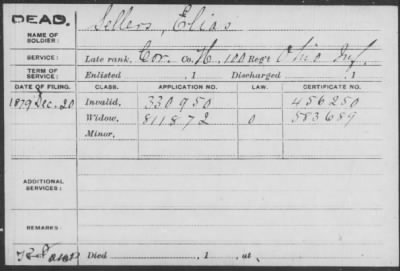 DEAD.
NAME OF SOLDIER: Sellers, Elias
SERVICE: Late rank, Cor. Co. H, 100 Reg't Ohio Inf.
TERM OF SERVICE: Enlisted , 1 Discharged , 1
DATE OF FILING. CLASS. APPLICATION NO. LAW. CERTIFICATE NO.
1879 Dec. 20 Invalid, 330950 456250
Widow, 811872 0 583689
Minor,
ADDITIONAL SERVICES:
REMARKS:
Died , 1 , at